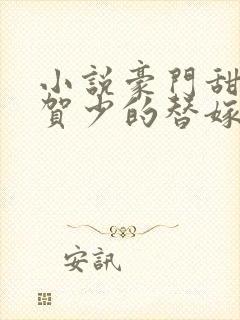 小說豪門甜
賀少的替嫁
安訊